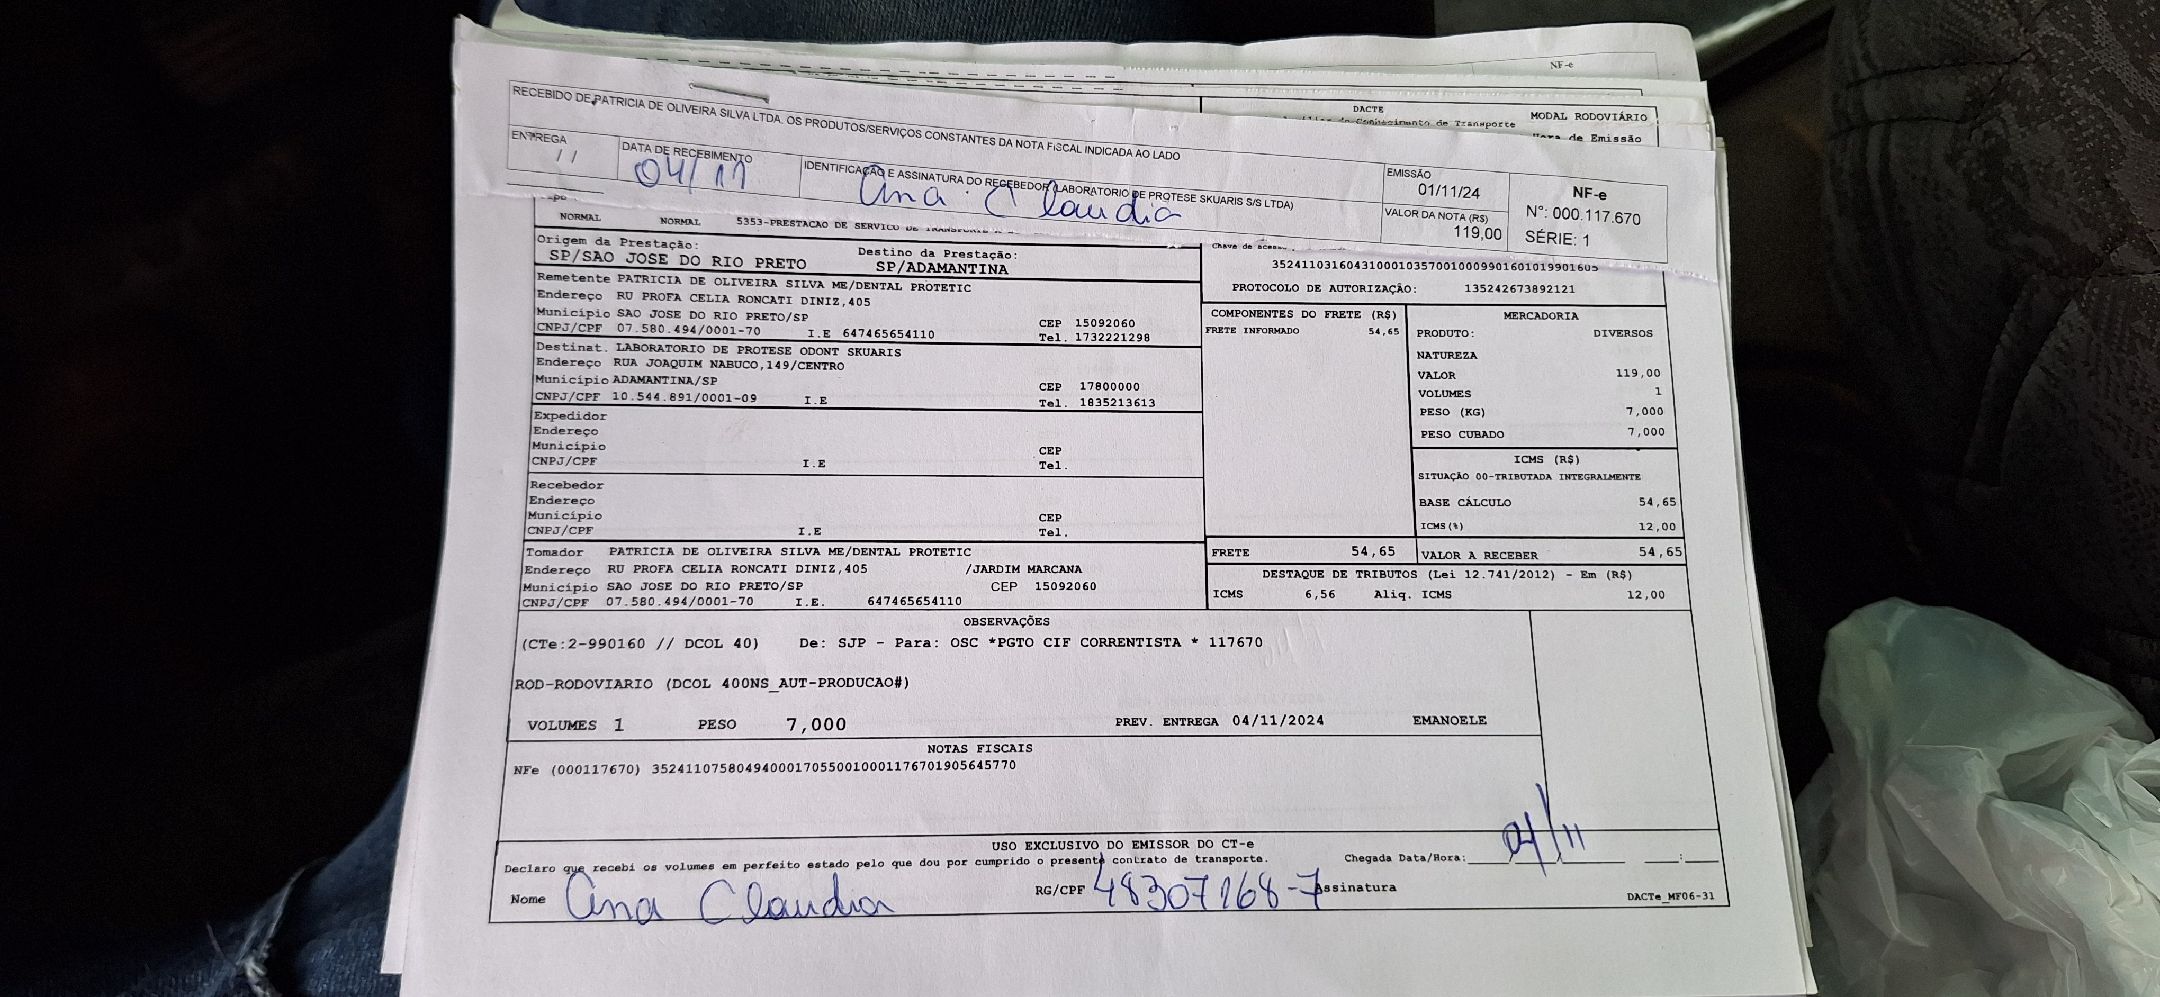 NF-e
DACTE
MODAL RODOVIÁRIO
de Conhecimento de Transporte
de Emissão
RECEBIDO DE PATRICIA DE OLIVEIRA SILVA LTDA. OS PRODUTOS/SERVIÇOS CONSTANTES DA NOTA FISCAL INDICADA AO LADO
ENTREGA
/ /
DATA DE RECEBIMENTO
04/11
IDENTIFICAÇÃO E ASSINATURA DO RECEBEDOR (LABORATORIO DE PROTESE SKUARIS S/S LTDA)
Ana Claudia
EMISSÃO
01/11/24
VALOR DA NOTA (R$)
119,00
NF-e
N°: 000.117.670
SÉRIE: 1
NORMAL NORMAL 5353-PRESTACAO DE SERVICO DE TRANSPORTE
Origem da Prestação: Destino da Prestação:
SP/SAO JOSE DO RIO PRETO SP/ADAMANTINA
Remetente PATRICIA DE OLIVEIRA SILVA ME/DENTAL PROTETIC
Endereço RU PROFA CELIA RONCATI DINIZ,405
Município SAO JOSE DO RIO PRETO/SP CEP 15092060
CNPJ/CPF 07.580.494/0001-70 I.E 647465654110 Tel. 1732221298
Destinat. LABORATORIO DE PROTESE ODONT SKUARIS
Endereço RUA JOAQUIM NABUCO,149/CENTRO
Município ADAMANTINA/SP CEP 17800000
CNPJ/CPF 10.544.891/0001-09 I.E Tel. 1835213613
Expedidor
Endereço
Município CEP
CNPJ/CPF I.E Tel.
Recebedor
Endereço
Município CEP
CNPJ/CPF I.E Tel.
Tomador PATRICIA DE OLIVEIRA SILVA ME/DENTAL PROTETIC
Endereço RU PROFA CELIA RONCATI DINIZ,405 /JARDIM MARCANA
Município SAO JOSE DO RIO PRETO/SP CEP 15092060
CNPJ/CPF 07.580.494/0001-70 I.E. 647465654110
Chave de acesso
35241103160431000103570010009901601019901605
PROTOCOLO DE AUTORIZAÇÃO: 135242673892121
COMPONENTES DO FRETE (R$)
FRETE INFORMADO 54,65
MERCADORIA
PRODUTO: DIVERSOS
NATUREZA
VALOR 119,00
VOLUMES 1
PESO (KG) 7,000
PESO CUBADO 7,000
ICMS (R$)
SITUAÇÃO 00-TRIBUTADA INTEGRALMENTE
BASE CÁLCULO 54,65
ICMS(%) 12,00
FRETE 54,65 VALOR A RECEBER 54,65
DESTAQUE DE TRIBUTOS (Lei 12.741/2012) - Em (R$)
ICMS 6,56 Aliq. ICMS 12,00
OBSERVAÇÕES
(CTe:2-990160 // DCOL 40) De: SJP - Para: OSC *PGTO CIF CORRENTISTA * 117670
ROD-RODOVIARIO (DCOL 400NS_AUT-PRODUCAO#)
VOLUMES 1 PESO 7,000 PREV. ENTREGA 04/11/2024 EMANOELE
NOTAS FISCAIS
NFe (000117670) 35241107580494000170550010001176701905645770
USO EXCLUSIVO DO EMISSOR DO CT-e
Declaro que recebi os volumes em perfeito estado pelo que dou por cumprido o presente contrato de transporte. Chegada Data/Hora: 04/11 __:__
Nome Ana Claudia RG/CPF 48307168-7 Assinatura
DACTe_MF06-31